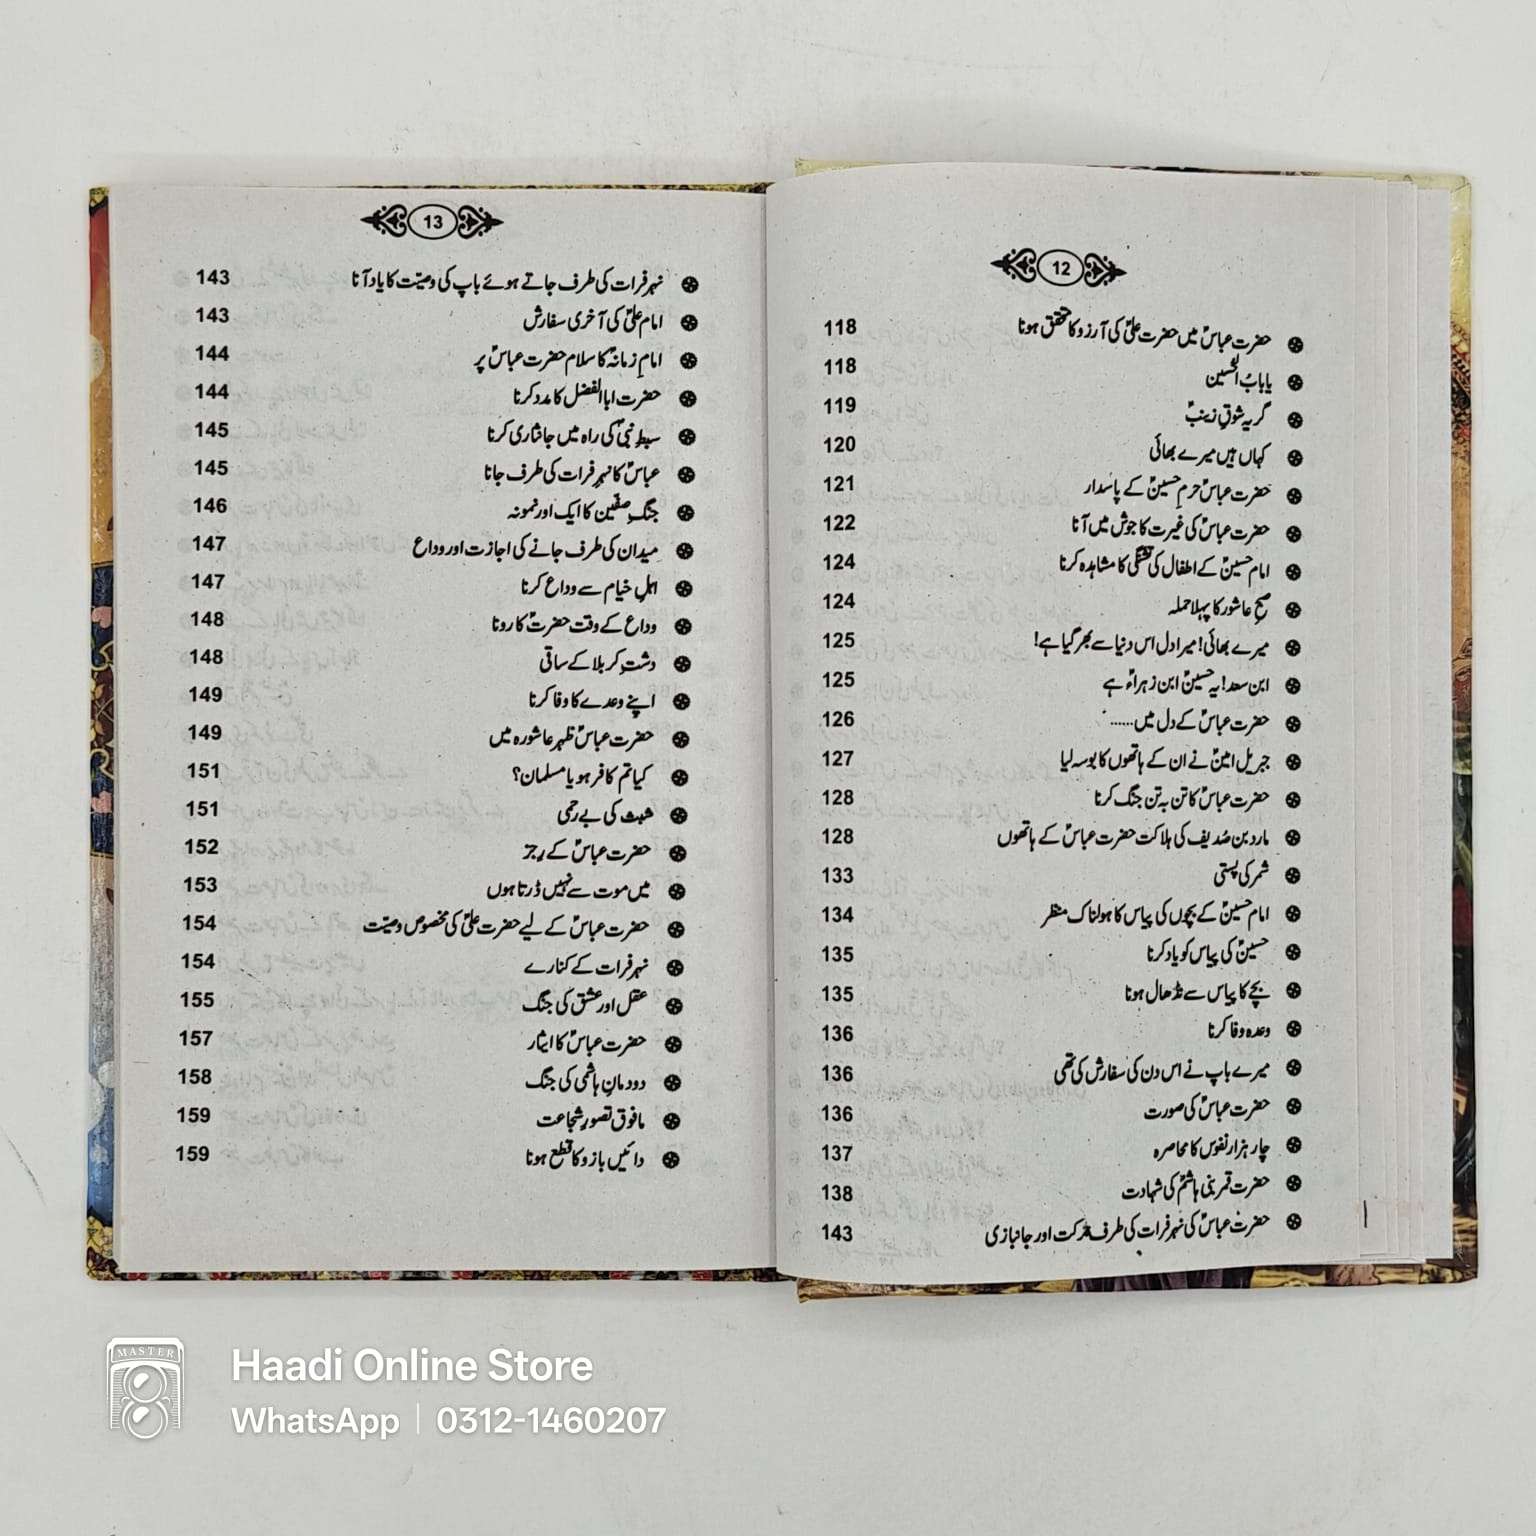 12
حضرت عباسؑ میں حضرت علیؑ کی آرزو کا تحقق ہونا 118
یا بابُ الحسین 118
گریہ شوقِ زینبؑ 119
کہاں ہیں میرے بھائی 120
حضرت عباسؑ حرمِ حسینؑ کے پاسدار 121
حضرت عباسؑ کی غیرت کا جوش میں آنا 122
امام حسینؑ کے اطفال کی تشنگی کا مشاہدہ کرنا 124
صبحِ عاشور کا پہلا حملہ 124
میرے بھائی! میرا دل اس دنیا سے بھر گیا ہے! 125
ابن سعد! یہ حسینؑ ابن زہراءؑ ہے 125
حضرت عباسؑ کے دل میں...... 126
جبریل امینؑ نے ان کے ہاتھوں کا بوسہ لیا 127
حضرت عباسؑ کا تن بہ تن جنگ کرنا 128
مارد بن صُدیف کی ہلاکت حضرت عباسؑ کے ہاتھوں 128
شمر کی پستی 133
امام حسینؑ کے بچوں کی پیاس کا ہولناک منظر 134
حسینؑ کی پیاس کو یاد کرنا 135
بچے کا پیاس سے نڈھال ہونا 135
وعدہ وفا کرنا 136
میرے باپ نے اس دن کی سفارش کی تھی 136
حضرت عباسؑ کی صورت 136
چار ہزار نفوس کا محاصرہ 137
حضرت قمر بنی ہاشمؑ کی شہادت 138
حضرت عباسؑ کی نہر فرات کی طرف حرکت اور جانبازی 143
13
نہر فرات کی طرف جاتے ہوئے باپ کی وصیّت کا یاد آنا 143
امام علیؑ کی آخری سفارش 143
امامِ زمانہؑ کا سلام حضرت عباسؑ پر 144
حضرت ابا الفضل کا مدد کرنا 144
سبطِ نبیؐ کی راہ میں جانثاری کرنا 145
عباسؑ کا نہرِ فرات کی طرف جانا 145
جنگِ صفّین کا ایک اور نمونہ 146
میدان کی طرف جانے کی اجازت اور وداع 147
اہلِ خیام سے وداع کرنا 147
وداع کے وقت حضرتؑ کا رونا 148
دشتِ کربلا کے ساقی 148
اپنے وعدے کا وفا کرنا 149
حضرت عباسؑ ظہرِ عاشورہ میں 149
کیا تم کافر ہو یا مسلمان؟ 151
شبث کی بے رحمی 151
حضرت عباسؑ کے رجز 152
میں موت سے نہیں ڈرتا ہوں 153
حضرت عباسؑ کے لیے حضرت علیؑ کی مخصوص وصیّت 154
نہر فرات کے کنارے 154
عقل اور عشق کی جنگ 155
حضرت عباسؑ کا ایثار 157
دودمانِ ہاشمی کی جنگ 158
مافوق تصورِ شجاعت 159
دائیں بازو کا قطع ہونا 159
MASTER
Haadi Online Store
WhatsApp | 0312-1460207